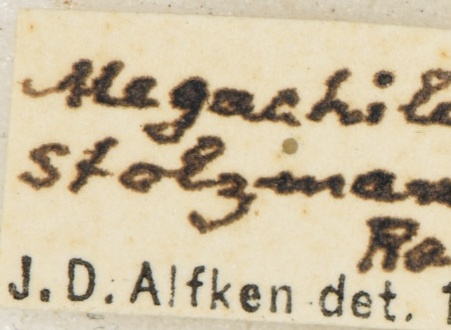 Megachile
Stolzmann
Ra
J. D. Alfken det. 1